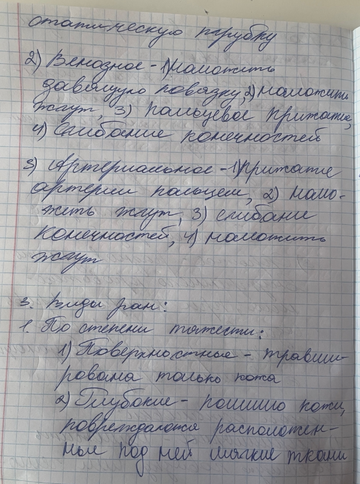 статическую трубку
2) Венозное - 1) наложить
давящую повязку, 2) наложить
жгут 3) пальцевое прижатие,
4) Сгибание конечностей
3) Артериальное - 1) прижатие
артерии пальцем, 2) нало-
жить жгут, 3) сгибание
конечностей, 4) наложить
жгут
3. Виды ран:
1. По степени тяжести:
1) Поверхностные - травми-
рована только кожа
2) Глубокие - помимо кожи,
повреждаются расположен-
ные под ней мягкие ткани